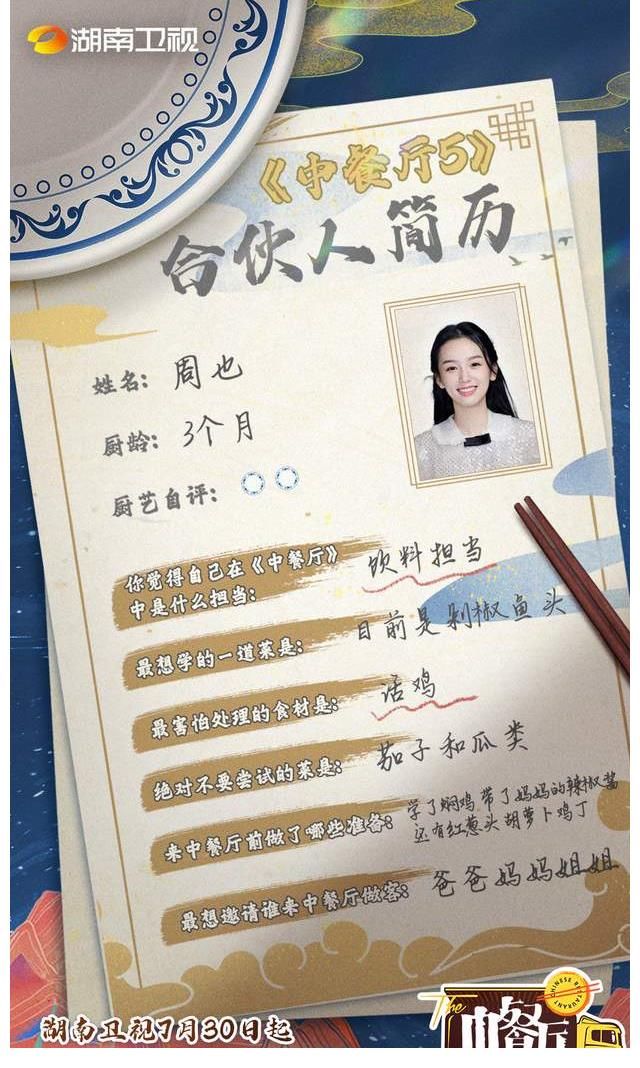 湖南卫视
《中餐厅5》
合伙人简历
姓名：周也
厨龄：3个月
厨艺自评：
你觉得自己在《中餐厅》
中是什么担当：
饮料担当
最想学的一道菜是：
目前是剁椒鱼头
最害怕处理的食材是：
活鸡
绝对不要尝试的菜是：
茄子和瓜类
来中餐厅前做了哪些准备：
学了焖鸡 带了妈妈的辣椒酱
还有红葱头胡萝卜鸡丁
最想邀请谁来中餐厅做客：
爸爸妈妈姐姐
湖南卫视7月30日起
The
CHINESE RESTAURANT
中餐厅